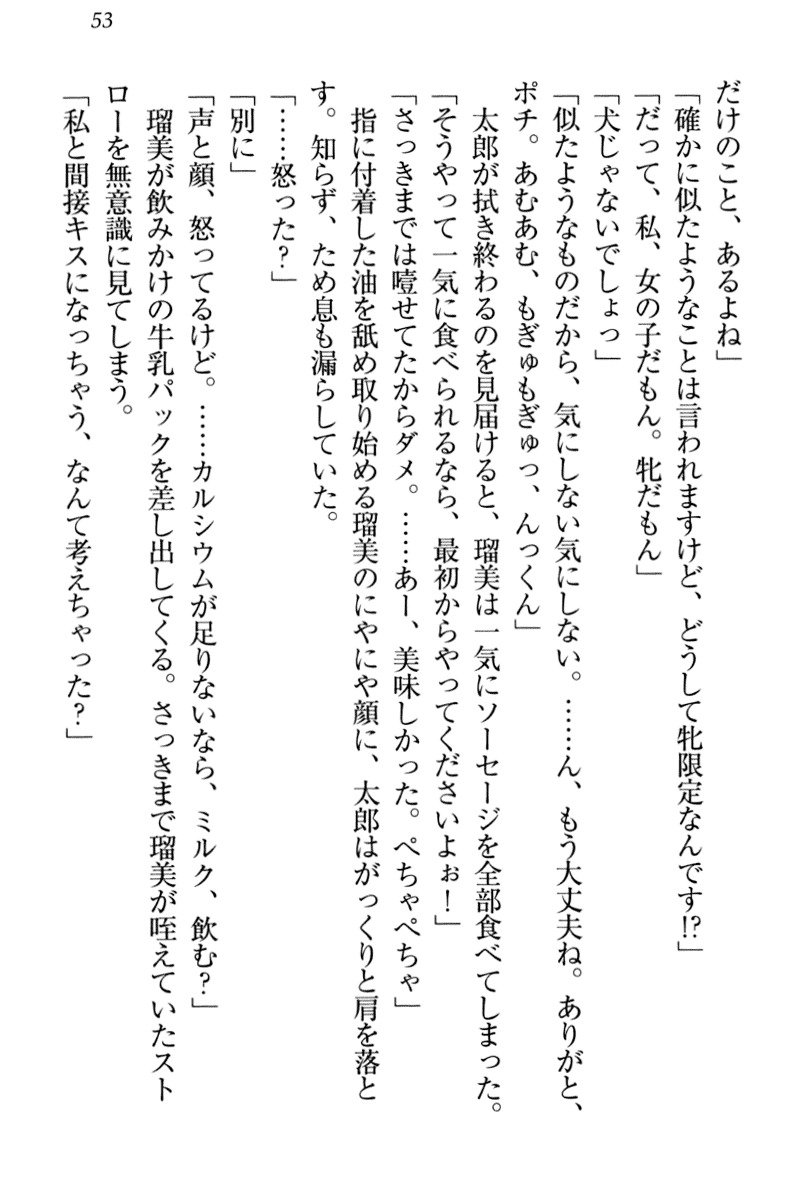 53
だけのこと、あるよね」
「確かに似たようなことは言われますけど、どうして牝限定なんです!?」
「だって、私、女の子だもん。牝だもん」
「犬じゃないでしょっ」
「似たようなものだから、気にしない気にしない。……ん、もう大丈夫ね。ありがと、
ポチ。あむあむ、もぎゅもぎゅっ、んっくん」
　太郎が拭き終わるのを見届けると、瑠美は一気にソーセージを全部食べてしまった。
「そうやって一気に食べられるなら、最初からやってくださいよぉ！」
「さっきまでは噎せてたからダメ。……あー、美味しかった。ぺちゃぺちゃ」
　指に付着した油を舐め取り始める瑠美のにやにや顔に、太郎はがっくりと肩を落と
す。知らず、ため息も漏らしていた。
「……怒った？」
「別に」
「声と顔、怒ってるけど。……カルシウムが足りないなら、ミルク、飲む？」
　瑠美が飲みかけの牛乳パックを差し出してくる。さっきまで瑠美が咥えていたスト
ローを無意識に見てしまう。
「私と間接キスになっちゃう、なんて考えちゃった？」